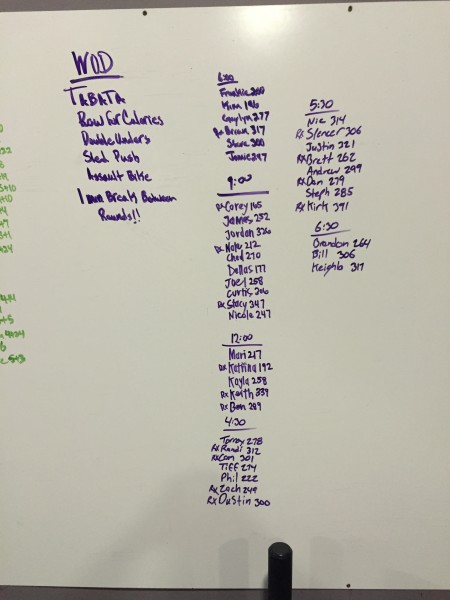 WOD
TABATA
Row for Calories
Double Unders
Sled Push
Assault Bike
1 min Break Between
Rounds!!
6:00
Frankie 200
Kim 196
277
Rx Brown 317
Steve 300
Jamie 247
9:00
Rx Corey 165
James 232
Jordan 326
Rx Nate 212
Chad 270
Dallas 177
Joel 258
Curtis
Rx Stacy 347
Nicole 247
12:00
Mari 217
Rx Katrina 192
Kayla 258
Rx Keith 339
Rx Ben 289
4:30
Torrey 278
Rx Randi 312
Rx Cam 301
Tiff 274
Phil 222
Rx Zach 249
Rx Dustin 300
5:30
Nic 314
Rx Spencer 306
Justin 321
Rx Brett 262
Andrew 299
Rx Dan 279
Steph 285
Rx Kirk 391
6:30
Brandon 264
Bill 306
Keighla 317